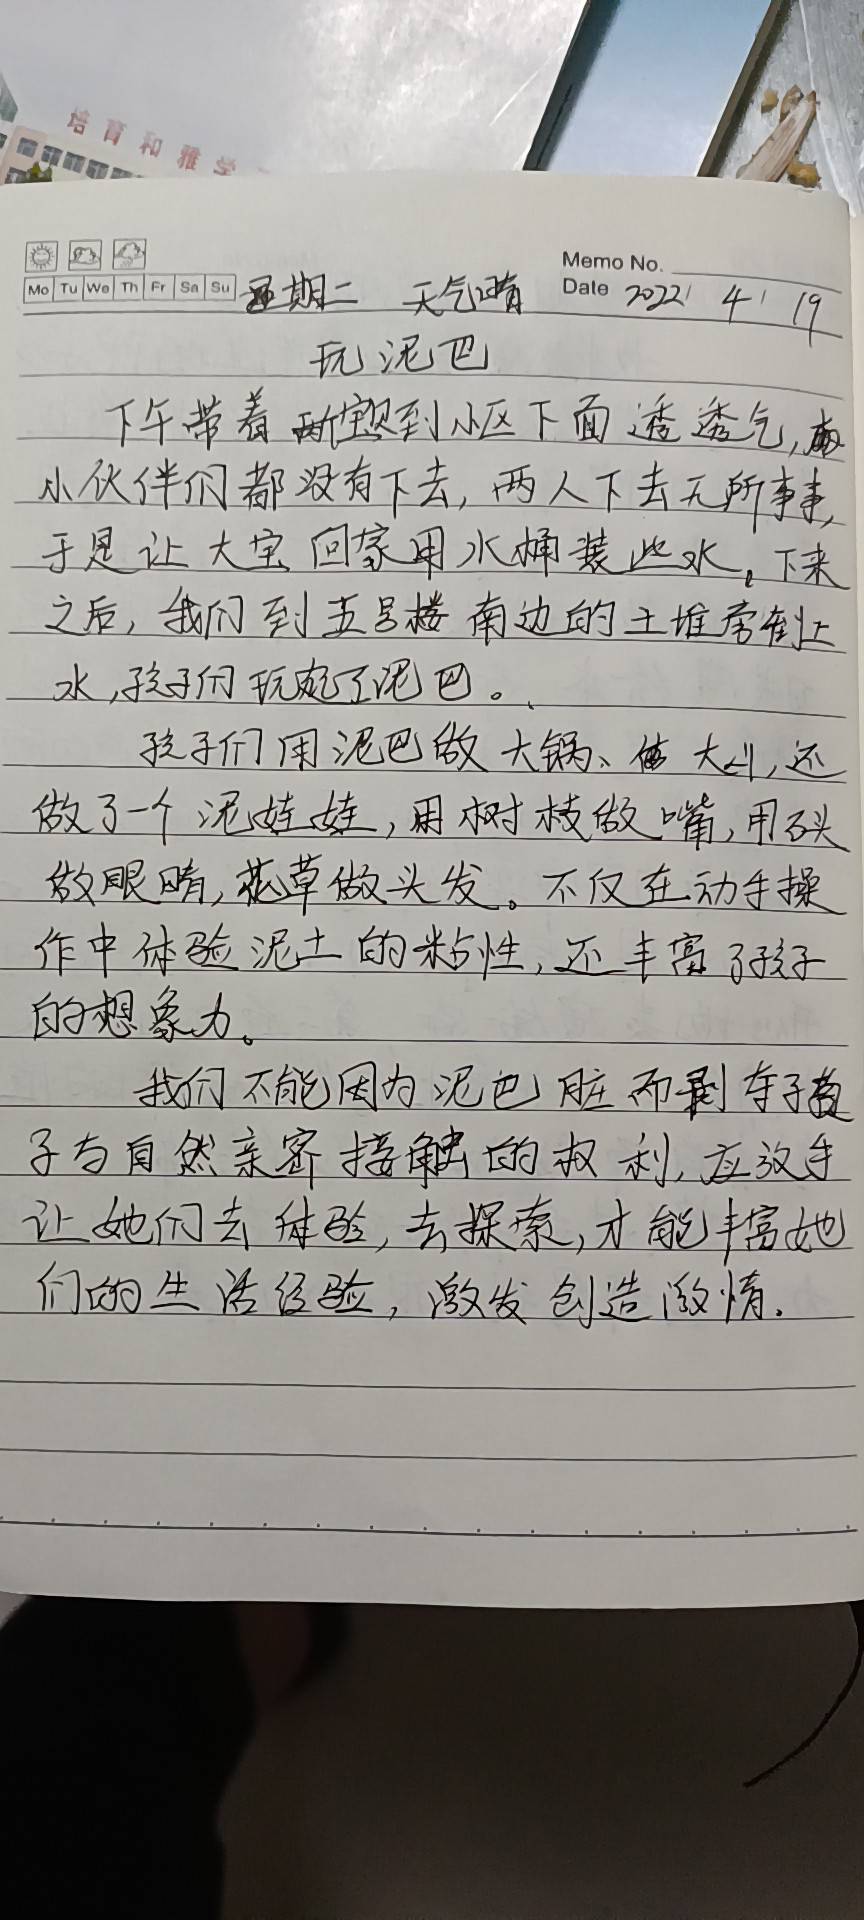 培育和雅学
Memo No.
Mo Tu We Th Fr Sa Su 星期二 天气晴 Date 2022 4 19
玩泥巴
下午带着两宝贝到小区下面透透气,
小伙伴们都没有下去,两人下去无所事事,
于是让大宝回家用水桶装些水。下来
之后,我们到五号楼南边的土堆旁倒上
水,孩子们玩起了泥巴。
孩子们用泥巴做大锅、做大山,还
做了一个泥娃娃,用树枝做嘴,用石头
做眼睛,花草做头发。不仅在动手操
作中体验泥土的粘性,还丰富了孩子
的想象力。
我们不能因为泥巴脏而剥夺孩
子与自然亲密接触的权利,应放手
让她们去体验,去探索,才能丰富她
们的生活经验,激发创造激情.